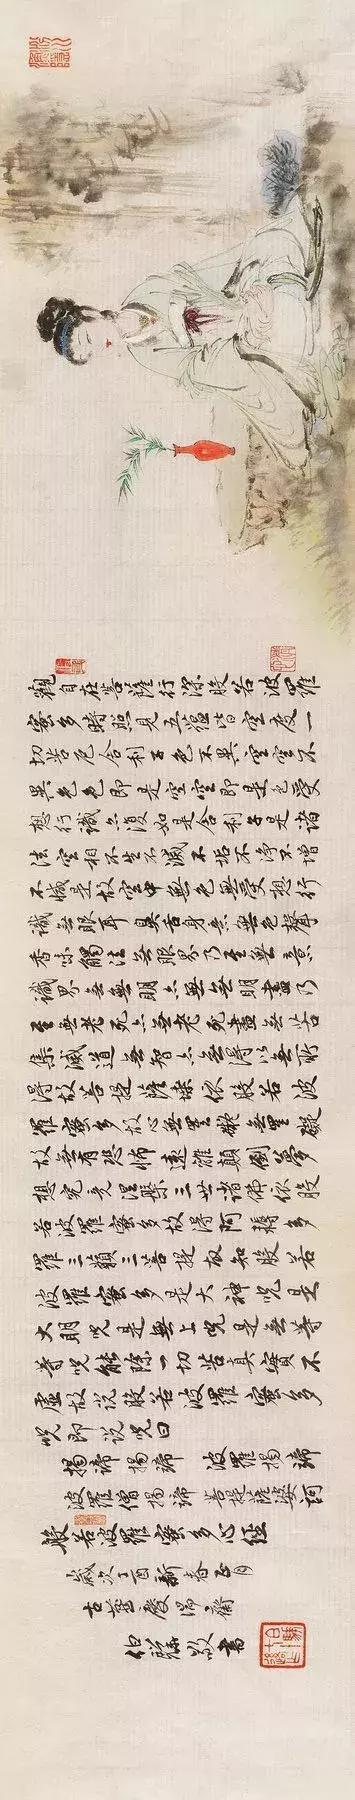 觀自在菩薩行深般若波羅
蜜多時照見五蘊皆空度一
切苦厄舍利子色不異空空不
異色色即是空空即是色受
想行識亦復如是舍利子是諸
法空相不生不滅不垢不淨不增
不減是故空中無色無受想行
識無眼耳鼻舌身意無色聲
香味觸法無眼界乃至無意
識界無無明亦無無明盡乃
至無老死亦無老死盡無苦
集滅道無智亦無得以無所
得故菩提薩埵依般若波
羅蜜多故心無罣礙無罣礙
故無有恐怖遠離顛倒夢
想究竟涅槃三世諸佛依般
若波羅蜜多故得阿耨多
羅三藐三菩提故知般若
波羅蜜多是大神咒是
大明咒是無上咒是無等
等咒能除一切苦真實不
虛故說般若波羅蜜多
咒即說咒曰
揭諦揭諦 波羅揭諦
波羅僧揭諦 菩提薩婆訶
般若波羅蜜多心經
歲次丁酉新春正月
敬書